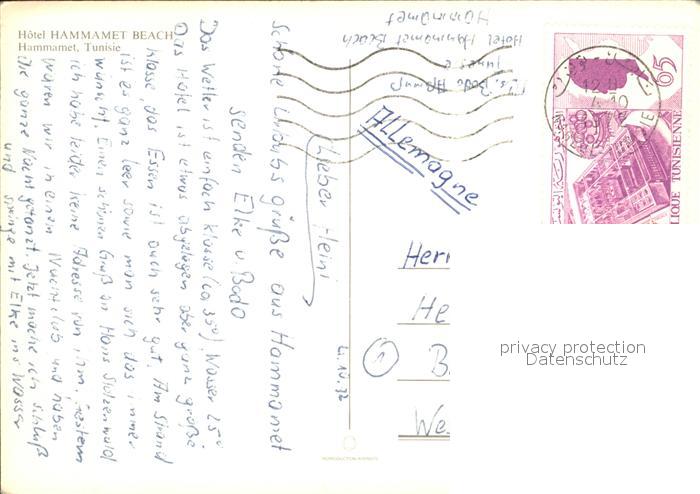 Hôtel HAMMAMET BEACH
Hammamet, Tunisie
Lieber Heini
Schöne Urlaubsgrüße aus Hammamet
senden Elke u. Bodo
Das Wetter ist einfach Klasse (ca. 35°) Wasser 25°
Das Hotel ist etwas abgelegen aber ganz große
Klasse, das Essen ist auch sehr gut. Am Strand
ist es ganz leer sowie man sich das immer
wünscht. Einen schönen Gruß an Hans
ich habe leider keine Adresse von ihm. Gestern
waren wir in einem Nachtclub und haben
die ganze Nacht getanzt. Jetzt mache ich Schluß
und springe mit Elke ins Wasser
4.10.72
Bodo
Hotel Hammamet Beach
Hammamet
Allemagne
Herr
He
1
B.
We.
65
LIQUE TUNISIENNE
privacy protection
Datenschutz